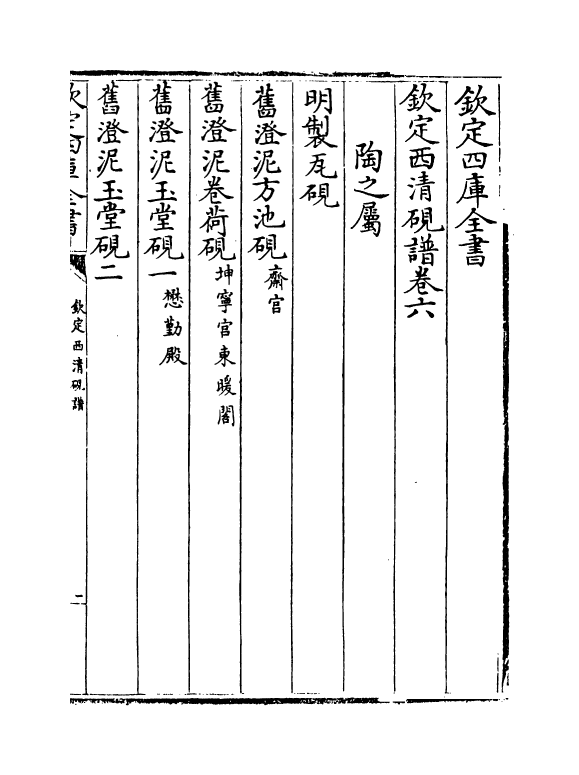 欽定四庫全書
欽定西清硯譜卷六
陶之屬
明製瓦硯
舊澄泥方池硯 齋宮
舊澄泥卷荷硯 坤寧宮東暖閣
舊澄泥玉堂硯一 懋勤殿
舊澄泥玉堂硯二
欽定四庫全書
欽定西清硯譜
二